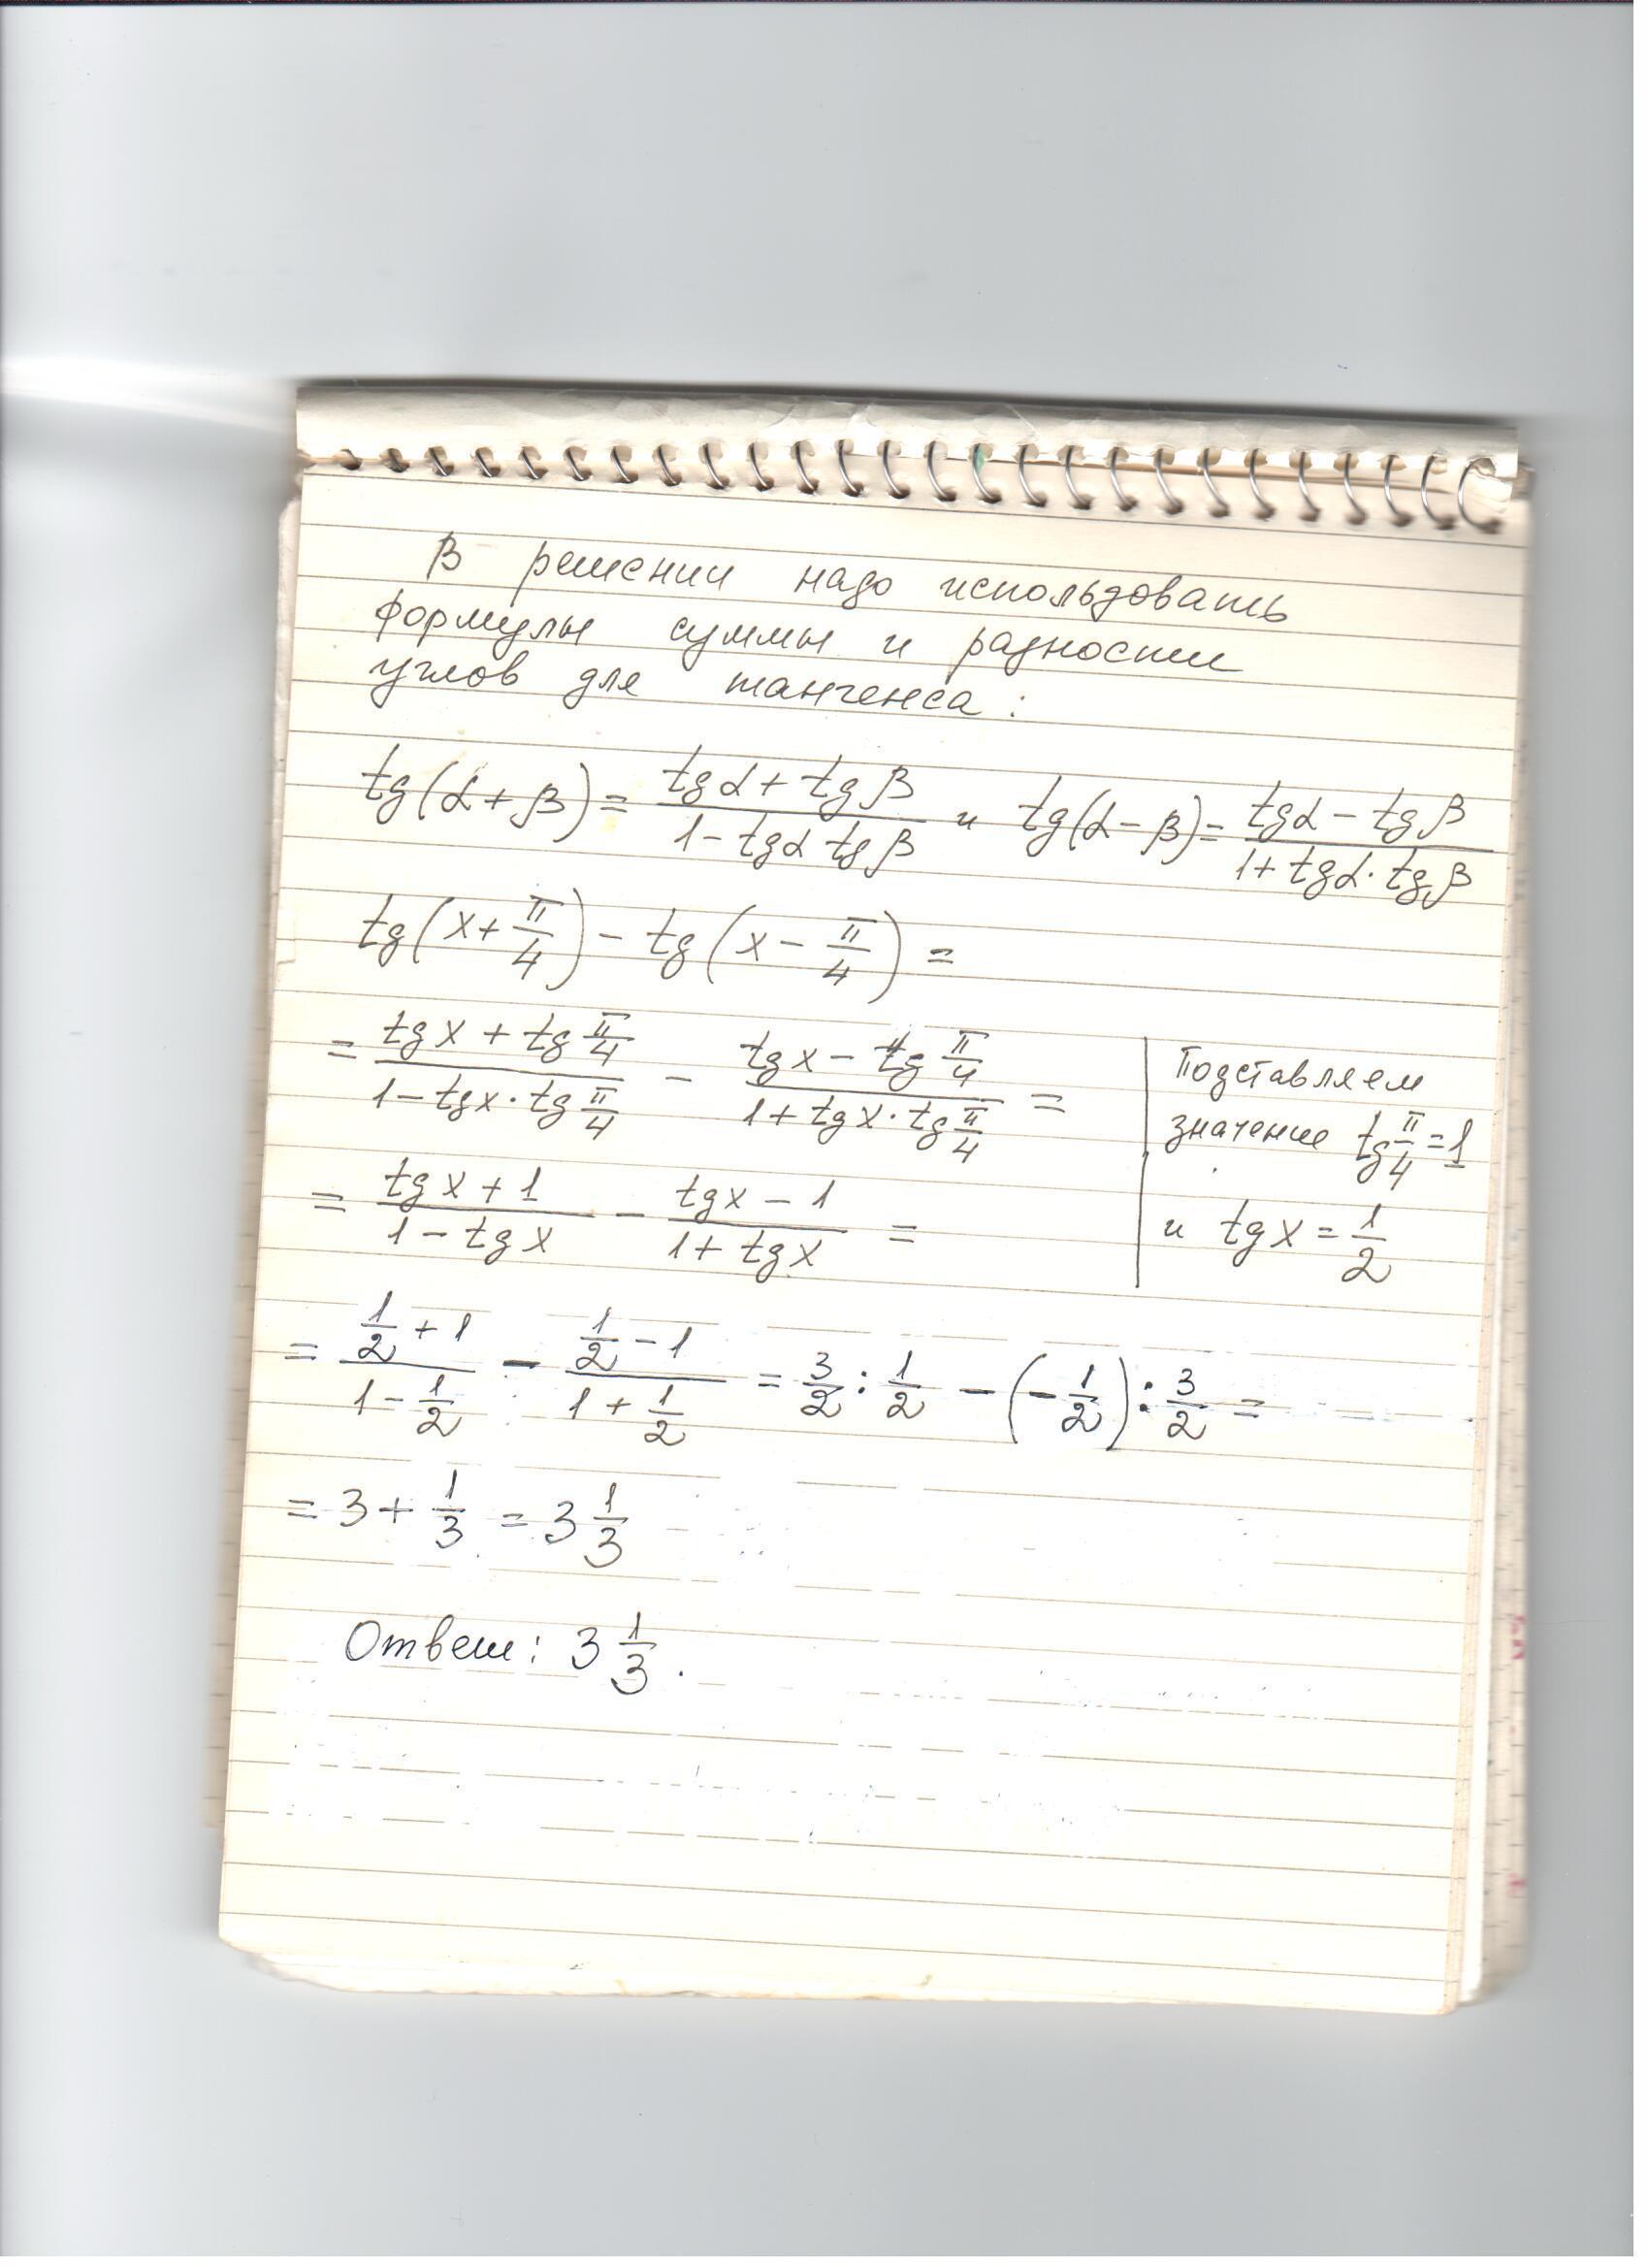 В решении надо использовать
формулы суммы и разности
углов для тангенса:
tg(α+β) = (tgα + tgβ)/(1 − tgα tgβ) и tg(α−β) = (tgα − tgβ)/(1 + tgα · tgβ)
tg(x + π/4) − tg(x − π/4) =
= (tgx + tg π/4)/(1 − tgx · tg π/4) − (tgx − tg π/4)/(1 + tgx · tg π/4) =
Подставляем
значение tg π/4 = 1
и tgx = 1/2
= (tgx + 1)/(1 − tgx) − (tgx − 1)/(1 + tgx) =
= (1/2 + 1)/(1 − 1/2) − (1/2 − 1)/(1 + 1/2) = 3/2 : 1/2 − (−1/2) : 3/2 =
= 3 + 1/3 = 3 1/3
Ответ: 3 1/3.